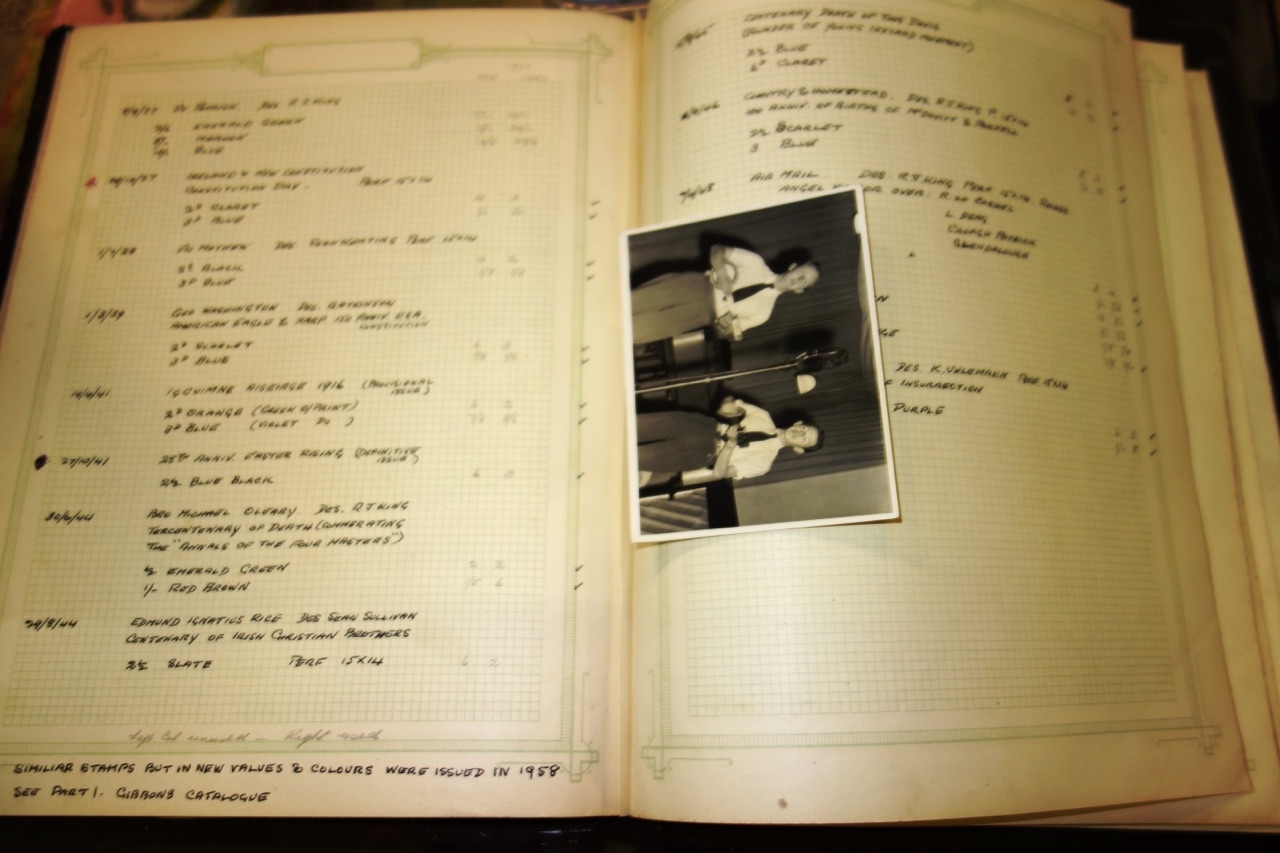 ST PATRICK DES R J KING
EMERALD GREEN
MAROON
BLUE
IRELAND'S NEW CONSTITUTION
CONSTITUTION DAY. PERF 15X14
2D CLARET
3D BLUE
1/7/38 FR MATHEW DES. SEAN KEATING PERF 15X14
2D BLACK
3D BLUE
1/3/39 GEO WASHINGTON DES. G ATKINSON
AMERICAN EAGLE & HARP 150 ANNIV U.S.A.
CONSTITUTION
2D SCARLET
3D BLUE
AISEIRGE 1916 (PROVISIONAL
ISSUE)
2D ORANGE (GREEN O/PRINT)
3D BLUE (VIOLET DO )
27/10/41 25TH ANNIV. EASTER RISING (DEFINITIVE
ISSUE)
2½ BLUE BLACK
30/6/44 BRO MICHAEL O'LEARY. DES. R J KING
TERCENTENARY OF DEATH (COMMERATING
THE "ANNALS OF THE FOUR MASTERS")
½ EMERALD GREEN
1/- RED BROWN
29/8/44 EDMUND IGNATIUS RICE DES SEAN SULLIVAN
CENTENARY OF IRISH CHRISTIAN BROTHERS
2½ SLATE PERF 15X14
Left Col unused — Right used
SIMILIAR STAMPS BUT IN NEW VALUES & COLOURS WERE ISSUED IN 1958
SEE PART 1. GIBBONS CATALOGUE
CENTENARY DEATH OF THOS DAVIS
(FOUNDER OF YOUNG IRELAND MOVEMENT)
2½ BLUE
6D CLARET
COUNTRY & HOMESTEAD. DES. R J KING P. 15X14
100 ANNIV. OF BIRTHS OF & PARNELL
2½ SCARLET
3 BLUE
AIR MAIL DES. R J KING PERF 15X14
ANGEL OVER: ROCK OF CASHEL
L. DERG
CROAGH PATRICK
GLENDALOUGH
DES. K. UHLEMANN PERF 15X14
INSURRECTION
PURPLE